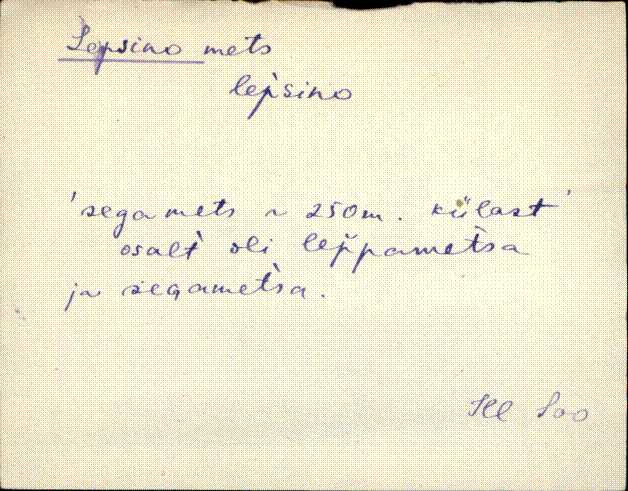 Lepsino mets
lep̀sino
'segamets ~ 250m. külast'
osalt̀ oli lep̀pamet̀sa
ja segamet̀sa.
Hl Soo